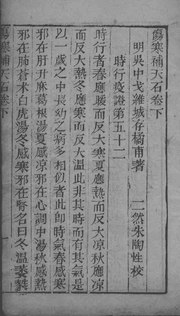 傷寒補天石卷下
明吳中戈維城存橘甫著　二然朱陶性校
時行疫證第五十二
時行者春應暖而反大寒夏應熱而反大涼秋應涼
而反大熱冬應寒而反大溫此非其時而有其氣是
以一歲之中長幼之病多相似者此即時氣春感寒
邪在肝升麻葛根湯夏感涼邪在心調中湯秋感熱
邪在肺蒼朮白虎湯冬感寒邪在腎名曰冬溫葳蕤
傷寒補天石卷下